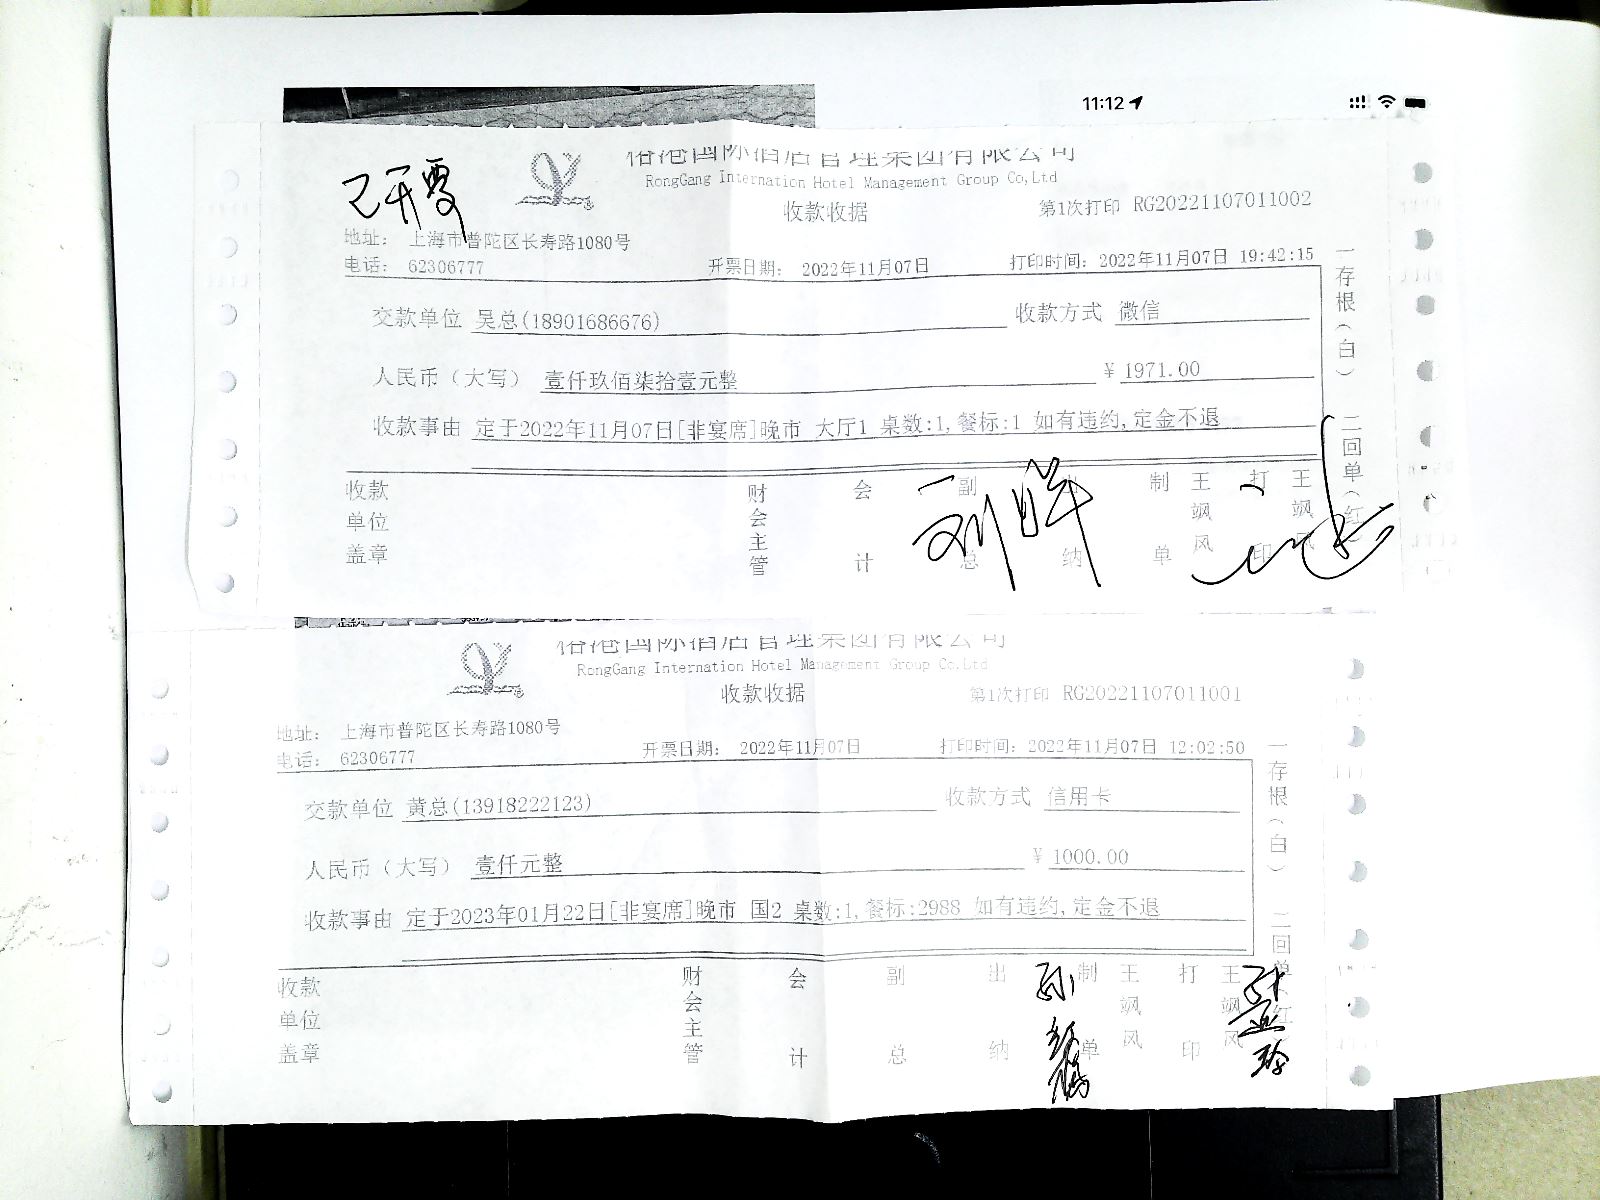 11:12
已开票
裕港国际酒店管理集团有限公司
RongGang Internation Hotel Management Group Co,Ltd
收款收据
第1次打印 RG20221107011002
地址： 上海市普陀区长寿路1080号
电话： 62306777
开票日期： 2022年11月07日
打印时间：2022年11月07日 19:42:15
交款单位 吴总(18901686676)
收款方式 微信
人民币（大写） 壹仟玖佰柒拾壹元整
¥ 1971.00
收款事由 定于2022年11月07日[非宴席]晚市 大厅1 桌数:1,餐标:1 如有违约,定金不退
一存根（白） 二回单（红）
收款单位盖章
财会主管
会计
副总
出纳
制单
王飒风
打印
王飒风
裕港国际酒店管理集团有限公司
RongGang Internation Hotel Management Group Co,Ltd
收款收据
第1次打印 RG20221107011001
地址： 上海市普陀区长寿路1080号
电话： 62306777
开票日期： 2022年11月07日
打印时间：2022年11月07日 12:02:50
交款单位 黄总(13918222123)
收款方式 信用卡
人民币（大写） 壹仟元整
¥ 1000.00
收款事由 定于2023年01月22日[非宴席]晚市 国2 桌数:1,餐标:2988 如有违约,定金不退
一存根（白） 二回单（红
收款单位盖章
财会主管
会计
副总
出纳
制单
王飒风
打印
王飒风